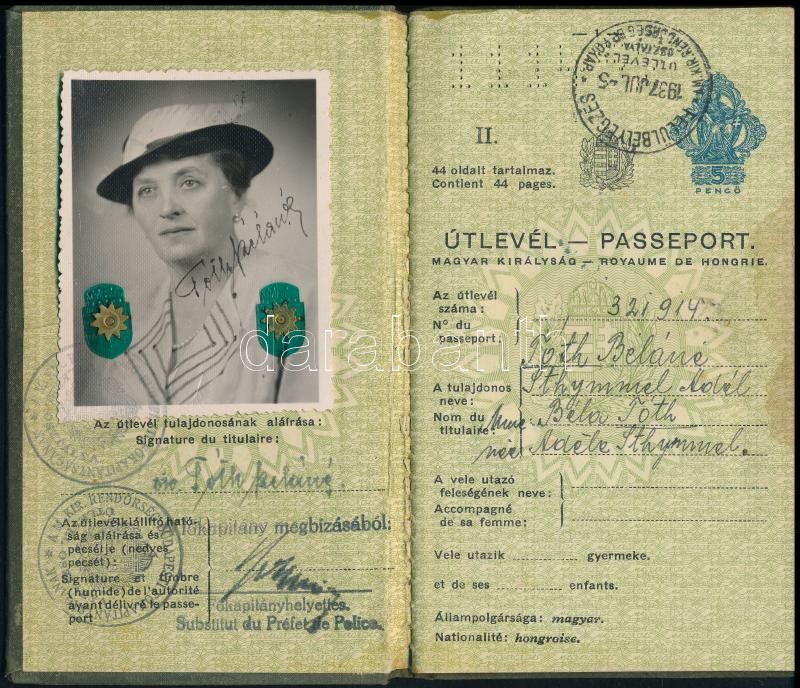 Tóth Béláné
Az útlevél tulajdonosának aláirása:
Signature du titulaire:
Tóth Béláné
Az útlevélkiállító ható-
ság aláirása és
pecsétje (nedves
pecsét):
Signature et timbre
(humide) de l'autorité
ayant délivré le passe-
port
Főkapitány megbizásából:
Főkapitányhelyettes.
Substitut du Préfet de Police.
1937 JUL
ÚTLEVÉL
II.
44 oldalt tartalmaz.
Contient 44 pages.
5
PENGŐ
ÚTLEVÉL — PASSEPORT.
MAGYAR KIRÁLYSÁG — ROYAUME DE HONGRIE.
Az útlevél
száma:
No du
passeport:
321914.
A tulajdonos
neve:
Nom du
titulaire:
Tóth Béláné
Sthymmel Adél
Mme. Béla Tóth
née Adéle Sthymmel.
A vele utazó
feleségének neve:
Accompagné
de sa femme:
Vele utazik gyermeke.
et de ses enfants.
Állampolgársága: magyar.
Nationalité: hongroise.
darabanth